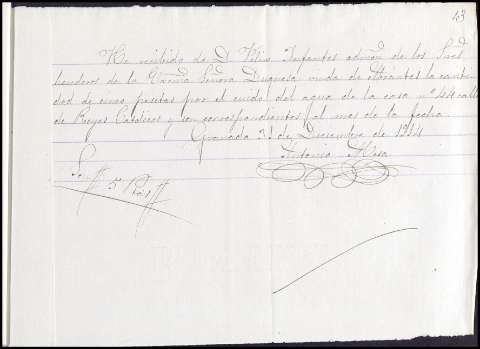 13
He recibido de D. Infantes admon de los Sres
herederos de la Excma Señora Duquesa viuda de Abrantes la canti
dad de cinco pesetas por el cuido del agua de la casa nº 44 calle
de Reyes Católicos y son correspondientes al mes de la fecha.
Granada 31 de Diciembre de 1914
Antonio Mesa
Son 5 Ptas